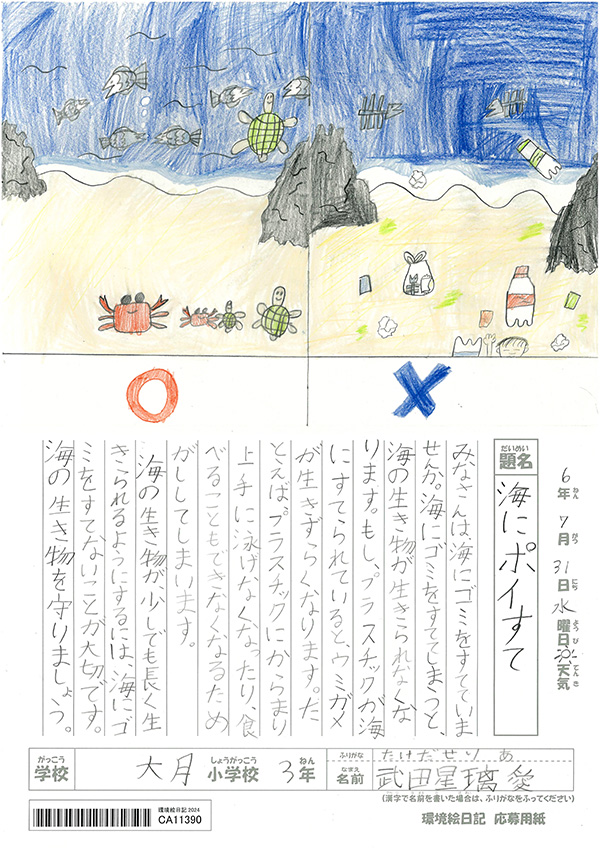 6年7月31日水曜日天気
ねん がつ にち ようび てんき
だいめい
題名 海にポイすて
みなさんは、海にゴミをすてていま
せんか。海にゴミをすててしまうと、
海の生き物が生きられなくな
ります。もし、プラスチックが海
にすてられていると、ウミガメ
が生きずらくなります。た
とえば、プラスチックにからまり
上手に泳げなくなったり、食
べることもできなくなるため
がししてしまいます。
海の生き物が、少しでも長く生
きられるようにするには、海にゴ
ミをすてないことが大切です。
海の生き物を守りましょう。
がっこう しょうがっこう ねん
学校 大月 小学校 3年
ふりがな たけだせりあ
なまえ
名前 武田星璃愛
(漢字で名前を書いた場合は、ふりがなをふってください)
環境絵日記 2024
CA11390
環境絵日記 応募用紙